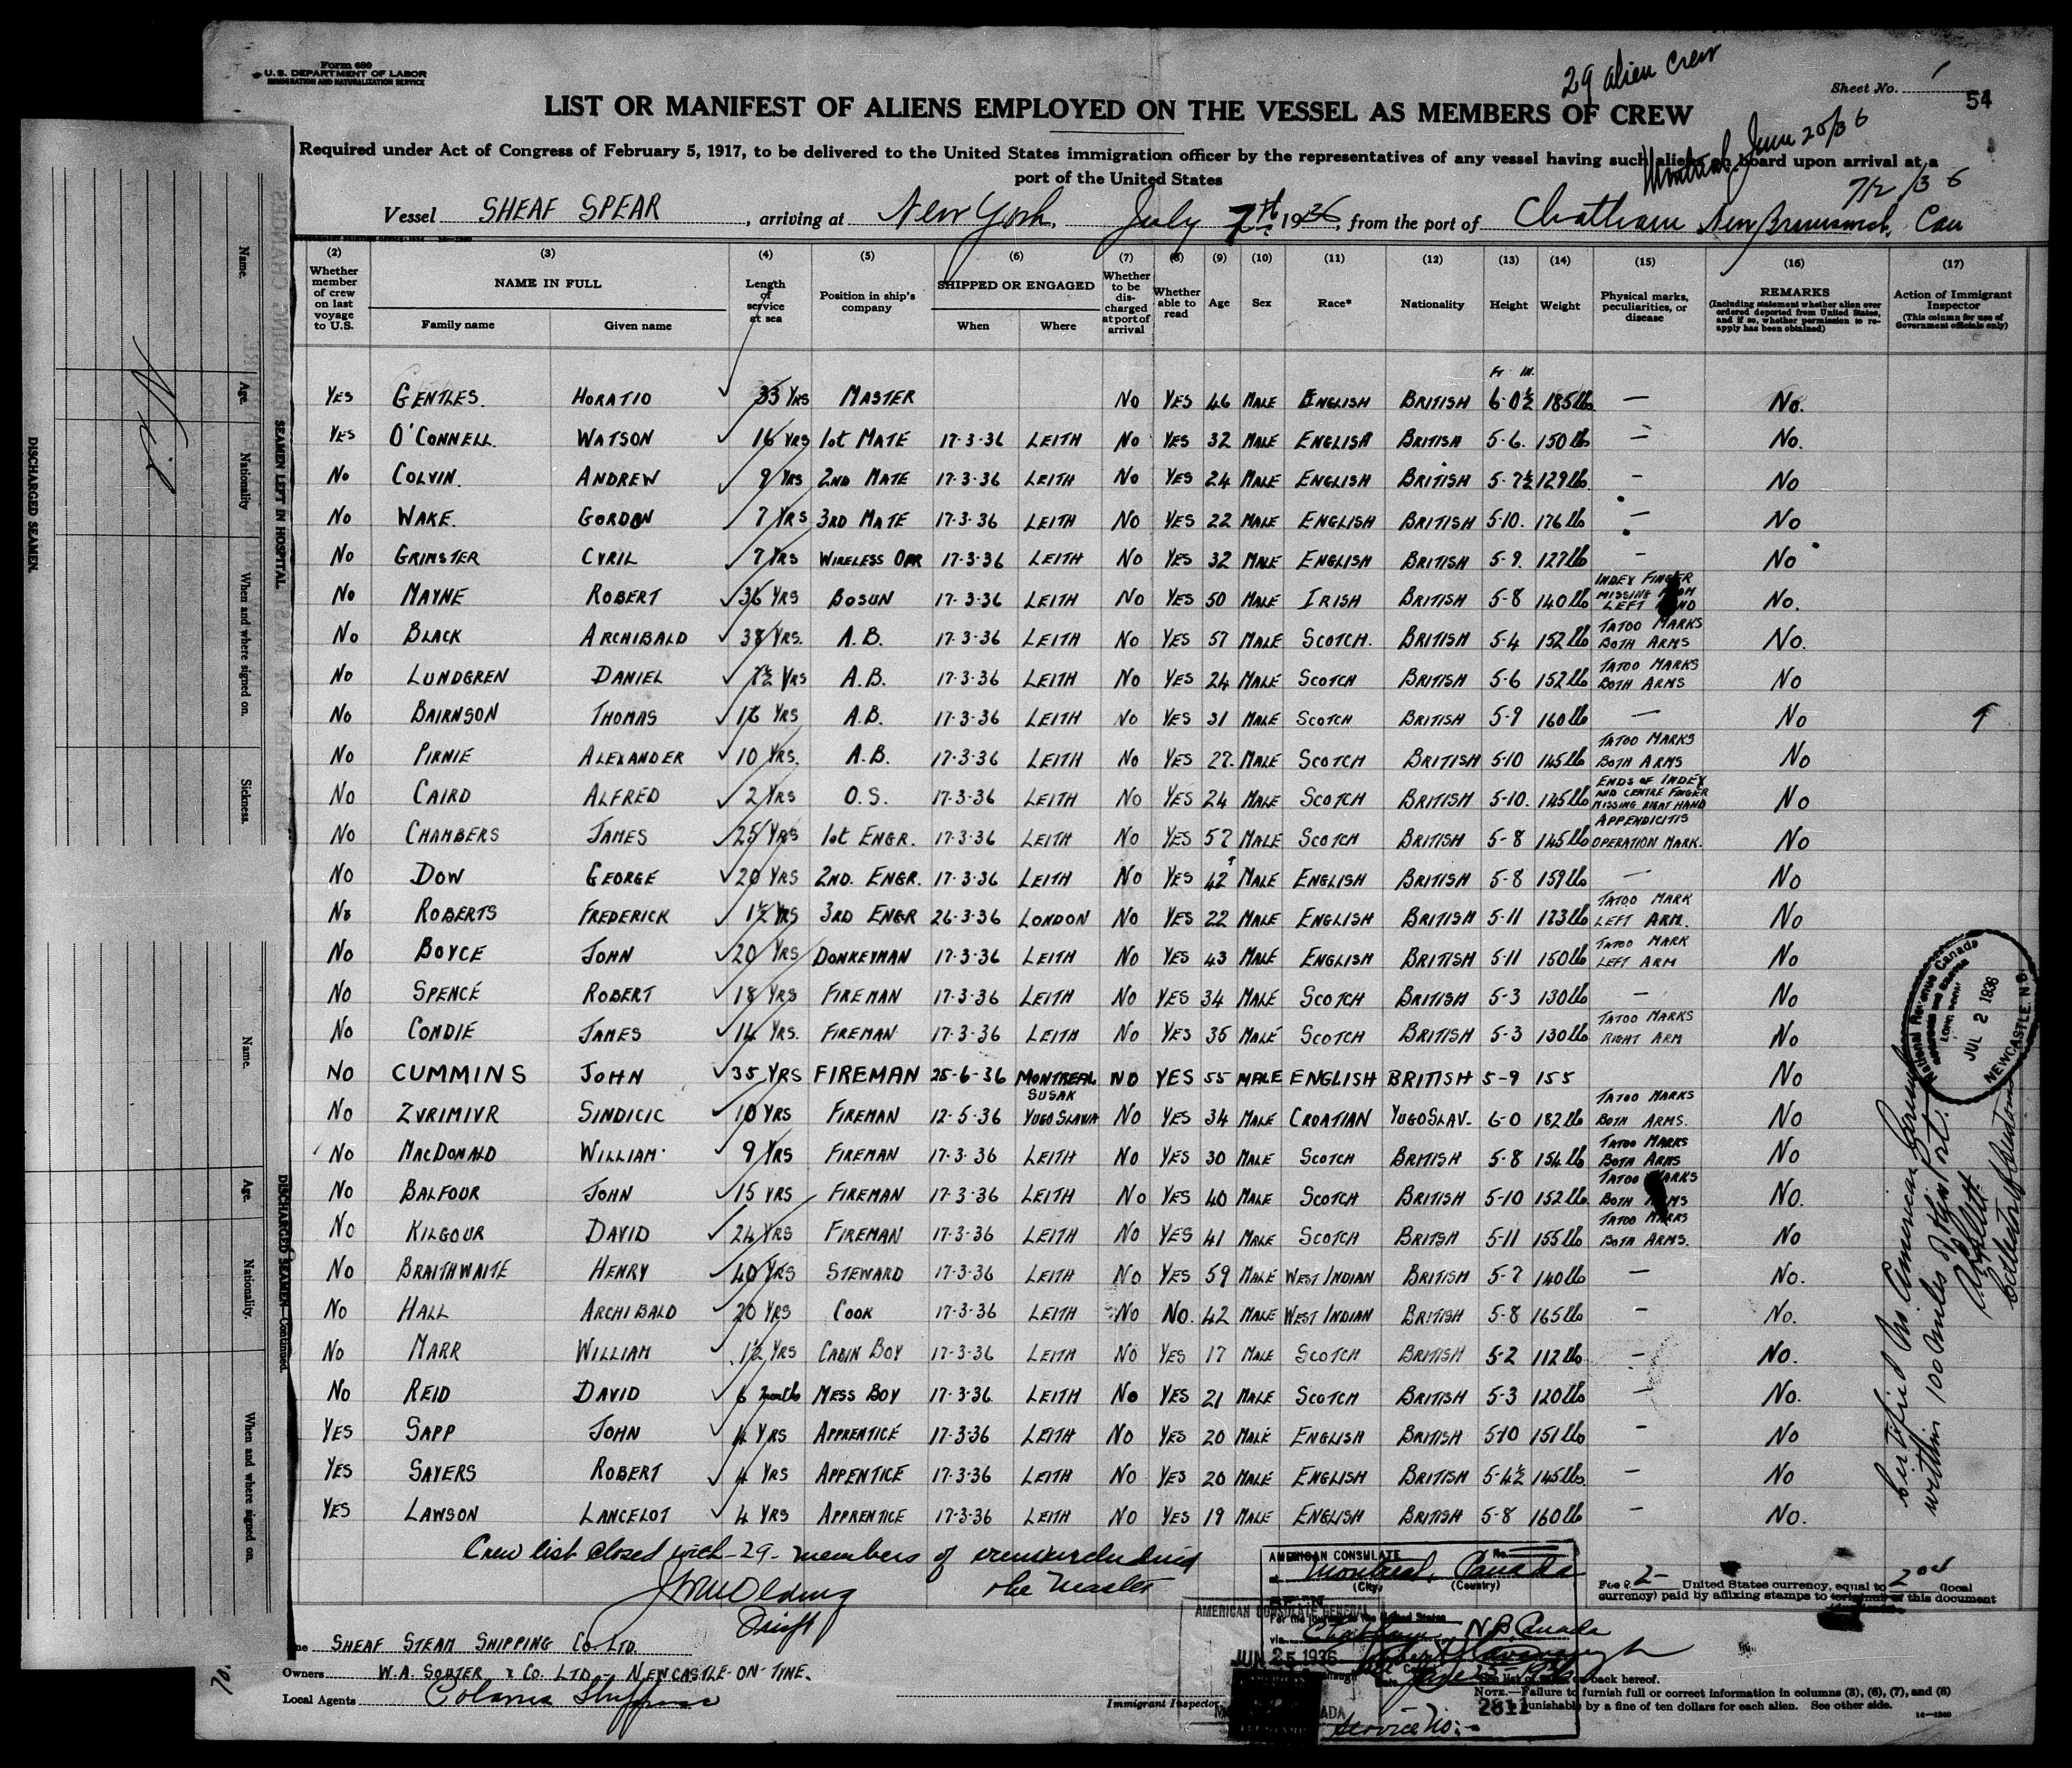 Form 680
U.S. DEPARTMENT OF LABOR
IMMIGRATION AND NATURALIZATION SERVICE
29 alien crew
Sheet No. 1
54
LIST OR MANIFEST OF ALIENS EMPLOYED ON THE VESSEL AS MEMBERS OF CREW
Montreal June 25/36
Required under Act of Congress of February 5, 1917, to be delivered to the United States immigration officer by the representatives of any vessel having such aliens on board upon arrival at a
port of the United States
7/2/36
Vessel SHEAF SPEAR, arriving at New York, July 7th 1936, from the port of Chatham New Brunswick, Can
(2) (3) (4) (5) (6) (7) (8) (9) (10) (11) (12) (13) (14) (15) (16) (17)
Whether member of crew on last voyage to U.S. NAME IN FULL Family name Given name Length of service at sea Position in ship's company SHIPPED OR ENGAGED When Where Whether to be discharged at port of arrival Whether able to read Age Sex Race* Nationality Height Weight Physical marks, peculiarities, or disease REMARKS (Including statement whether alien ever ordered deported from United States, and if so, whether permission to re-apply has been obtained) Action of Immigrant Inspector (This column for use of Government officials only)
Ft In.
YES GENTLES. HORATIO 33 YRS MASTER NO YES 46 MALE ENGLISH BRITISH 6-0½ 185 lbs — No.
YES O'CONNELL. WATSON 16 YRS 1st MATE 17-3-36 LEITH NO YES 32 MALE ENGLISH BRITISH 5-6. 150 lb — No.
NO COLVIN. ANDREW 9 YRS 2ND MATE 17-3-36 LEITH NO YES 24 MALE ENGLISH BRITISH 5-7½ 129 lb — No
NO WAKE. GORDON 7 YRS 3RD MATE 17-3-36 LEITH NO YES 22 MALE ENGLISH BRITISH 5-10. 176 lb — No
NO GRIMSTER CYRIL 7 YRS WIRELESS OPR 17-3-36 LEITH NO YES 32 MALE ENGLISH BRITISH 5-9. 127 lb — No
NO MAYNE ROBERT 36 YRS BOSUN 17-3-36 LEITH NO YES 50 MALE IRISH BRITISH 5-8 140 lb INDEX FINGER MISSING FROM LEFT HAND No.
NO BLACK ARCHIBALD 38 YRS. A.B. 17-3-36 LEITH NO YES 57 MALE SCOTCH. BRITISH 5-4 152 lb TATOO MARKS BOTH ARMS No.
NO LUNDGREN DANIEL 7½ YRS A.B. 17-3-36 LEITH NO YES 24 MALE SCOTCH BRITISH 5-6 152 lb TATOO MARKS BOTH ARMS No
NO BAIRNSON THOMAS 16 YRS A.B. 17-3-36 LEITH NO YES 31 MALE SCOTCH BRITISH 5-9 160 lb — No
NO PIRNIE ALEXANDER 10 YRS. A.B. 17-3-36 LEITH NO YES 27. MALE SCOTCH BRITISH 5-10 145 lb TATOO MARKS BOTH ARMS No
NO CAIRD ALFRED 2 YRS O.S. 17-3-36 LEITH NO YES 24 MALE SCOTCH BRITISH 5-10. 145 lb ENDS OF INDEX AND CENTRE FINGER MISSING RIGHT HAND No
NO CHAMBERS JAMES 25 YRS 1st ENGR. 17-3-36 LEITH NO YES 57 MALE SCOTCH BRITISH 5-8 145 lb APPENDICITIS OPERATION MARK. No
NO DOW GEORGE 20 YRS 2ND. ENGR. 17-3-36 LEITH NO YES 42 MALE ENGLISH BRITISH 5-8 159 lb — No
NO ROBERTS FREDERICK 1½ YRS 3RD ENGR 26-3-36 LONDON NO YES 22 MALE ENGLISH BRITISH 5-11 173 lb TATOO MARK LEFT ARM. No
NO BOYCE JOHN 20 YRS DONKEYMAN 17-3-36 LEITH NO YES 43 MALE ENGLISH BRITISH 5-11 150 lb TATOO MARK LEFT ARM No
NO SPENCE ROBERT 18 YRS FIREMAN 17-3-36 LEITH NO YES 34 MALE SCOTCH BRITISH 5-3 130 lb — No
NO CONDIE JAMES 14 YRS. FIREMAN 17-3-36 LEITH NO YES 35 MALE SCOTCH BRITISH 5-3 130 lb TATOO MARKS RIGHT ARM No
NO CUMMINS JOHN 35 YRS FIREMAN 25-6-36 MONTREAL NO YES 55 MALE ENGLISH BRITISH 5-9 155 No
NO ZVRIMIVR SINDICIC 10 YRS FIREMAN 12-5-36 SUSAK YUGO SLAVIA NO YES 34 MALE CROATIAN YUGOSLAV. 6-0 182 lb TATOO MARKS BOTH ARMS. No
NO MACDONALD WILLIAM 9 YRS FIREMAN 17-3-36 LEITH NO YES 30 MALE SCOTCH BRITISH 5-8 154 lb TATOO MARKS BOTH ARMS No
NO BALFOUR JOHN 15 YRS FIREMAN 17-3-36 LEITH NO YES 40 MALE SCOTCH BRITISH 5-10 152 lb TATOO MARKS BOTH ARMS No.
NO KILGOUR DAVID 24 YRS FIREMAN 17-3-36 LEITH NO YES 41 MALE SCOTCH BRITISH 5-11 155 lb TATOO MARKS BOTH ARMS. No
NO BRAITHWAITE HENRY 40 YRS STEWARD 17-3-36 LEITH NO YES 59 MALE WEST INDIAN BRITISH 5-7 140 lb — No.
NO HALL ARCHIBALD 20 YRS COOK 17-3-36 LEITH NO NO. 42 MALE WEST INDIAN BRITISH 5-8 165 lb — No.
NO MARR WILLIAM 1½ YRS CABIN BOY 17-3-36 LEITH NO YES 17 MALE SCOTCH BRITISH 5-2 112 lb — No.
NO REID DAVID 6 months MESS BOY 17-3-36 LEITH NO YES 21 MALE SCOTCH BRITISH 5-3 120 lb — No.
YES SAPP JOHN 4 YRS APPRENTICE 17-3-36 LEITH NO YES 20 MALE ENGLISH BRITISH 5-10 151 lb — No
YES SAYERS ROBERT 4 YRS APPENTICE 17-3-36 LEITH NO YES 20 MALE ENGLISH BRITISH 5-4½ 145 lbs — No
YES LAWSON LANCELOT 4 YRS APPRENTICE 17-3-36 LEITH NO YES 19 MALE ENGLISH BRITISH 5-8 160 lb — No.
Crew list closed with - 29 - members of crew including
the Master
AMERICAN CONSULATE No.
at Montreal, Canada
(City) (Country)
SEEN
For the journey to the United States
via Chatham N B Canada
AMERICAN CONSULATE GENERAL
JUN 25 1936
June 25 - 1936
Service No: -
2811
Fee $ 2 - United States currency, equal to 2.00 (local
currency) paid by affixing stamps to original of this document
Line SHEAF STEAM SHIPPING CO. LTD.
Owners W.A. SOUTER & CO. LTD. - NEWCASTLE-ON-TINE.
Local Agents
Immigrant Inspector
on back hereof.
NOTE.—Failure to furnish full or correct information in columns (3), (6), (7), and (8)
is punishable by a fine of ten dollars for each alien. See other side.
14—1240
National Revenue Canada
JUL 2 1936
NEWCASTLE, N.B.
Certified No American Consulate
within 100 miles of this port.
Collector of Customs
DISCHARGED SEAMEN.
SEAMEN LEFT IN HOSPITAL
Name. Age. Nationality When and where signed on. Sickness.
DISCHARGED SEAMEN—Continued
Name. Age. Nationality. When and where signed on.